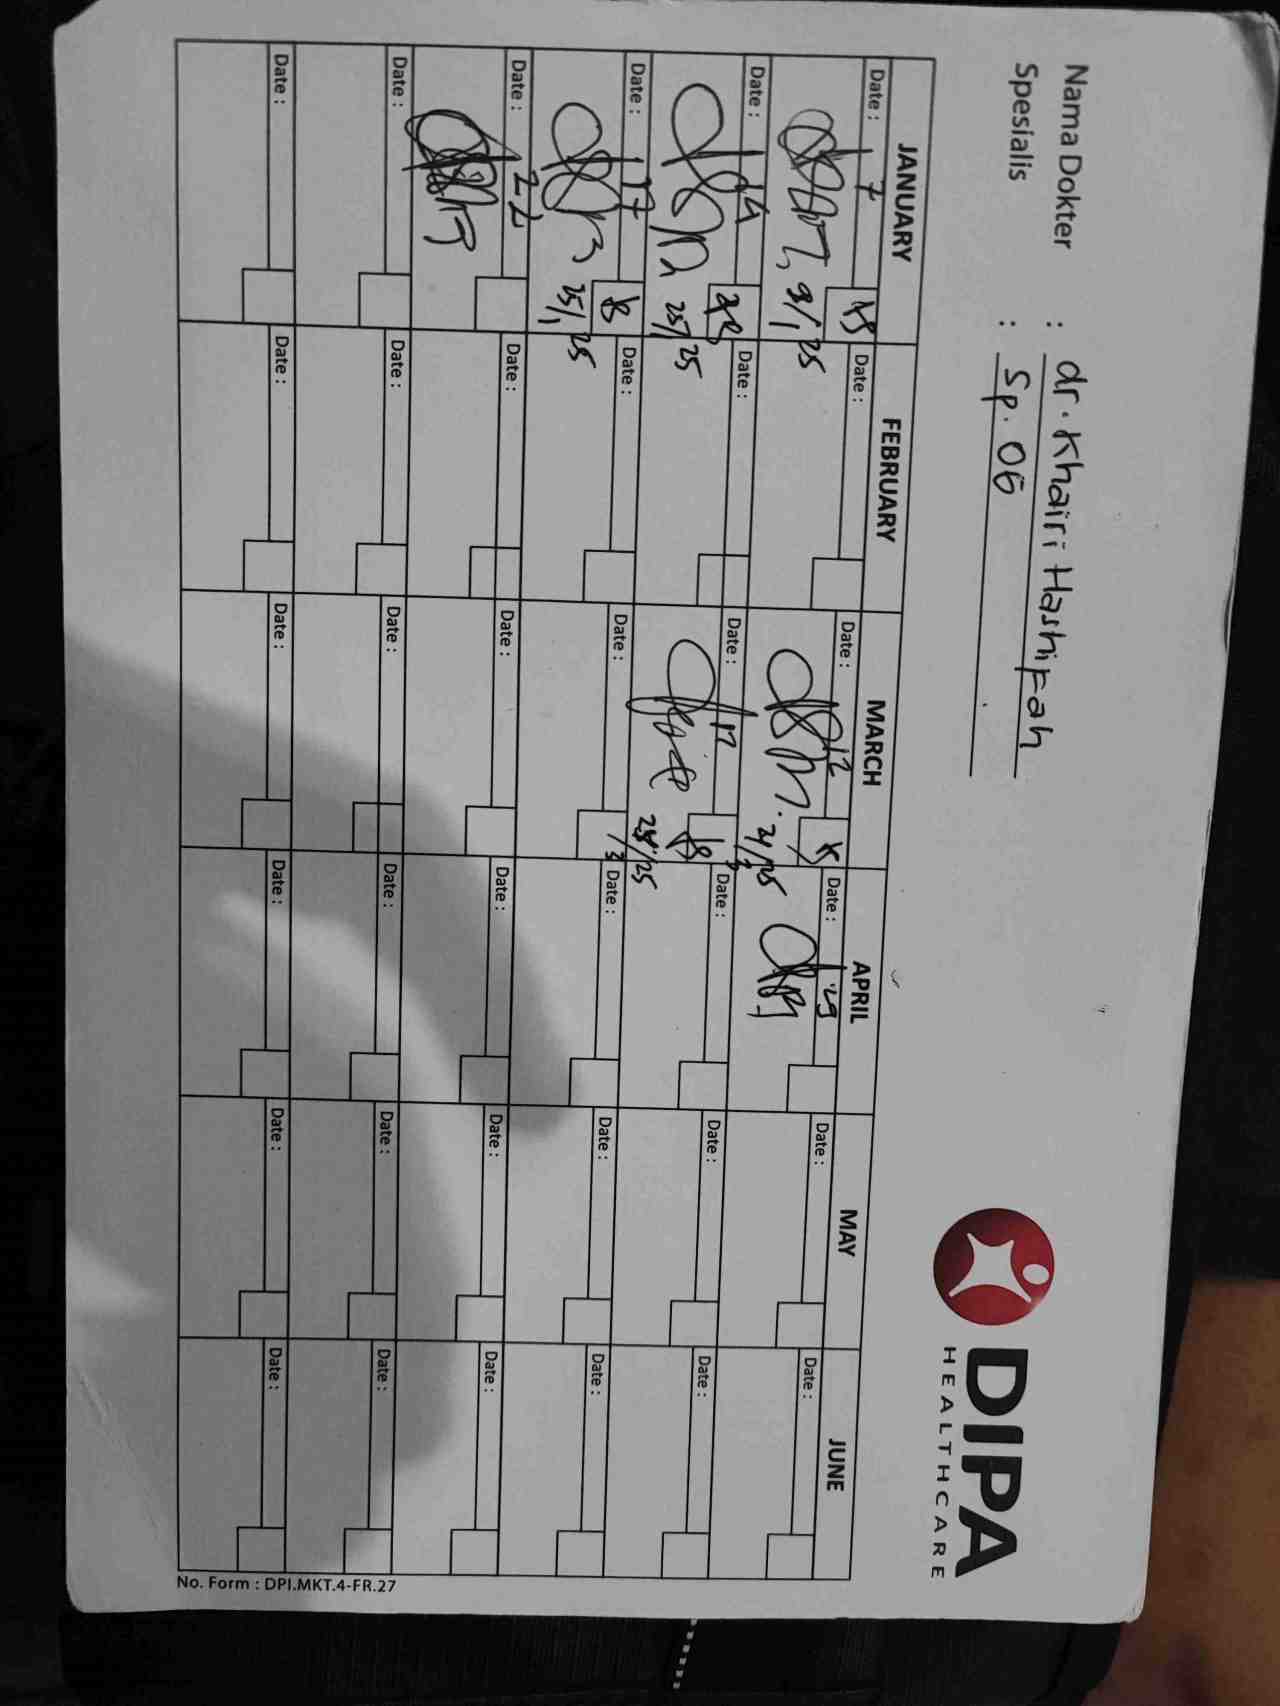 Nama Dokter : dr. Khairi Hashifah
Spesialis : Sp. OG
DIPA
HEALTHCARE
JANUARY FEBRUARY MARCH APRIL MAY JUNE
Date : 7 Date : Date : 12 Date : 29 Date : Date :
9/1 25 24/3 25
Date : 14 Date : Date : 17 Date : Date : Date :
25/1 25 /3 25
Date : 17 Date : Date : Date : Date : Date :
25/1 25
Date : 22 Date : Date : Date : Date : Date :
Date : Date : Date : Date : Date : Date :
Date : Date : Date : Date : Date : Date :
No. Form : DPI.MKT.4-FR.27